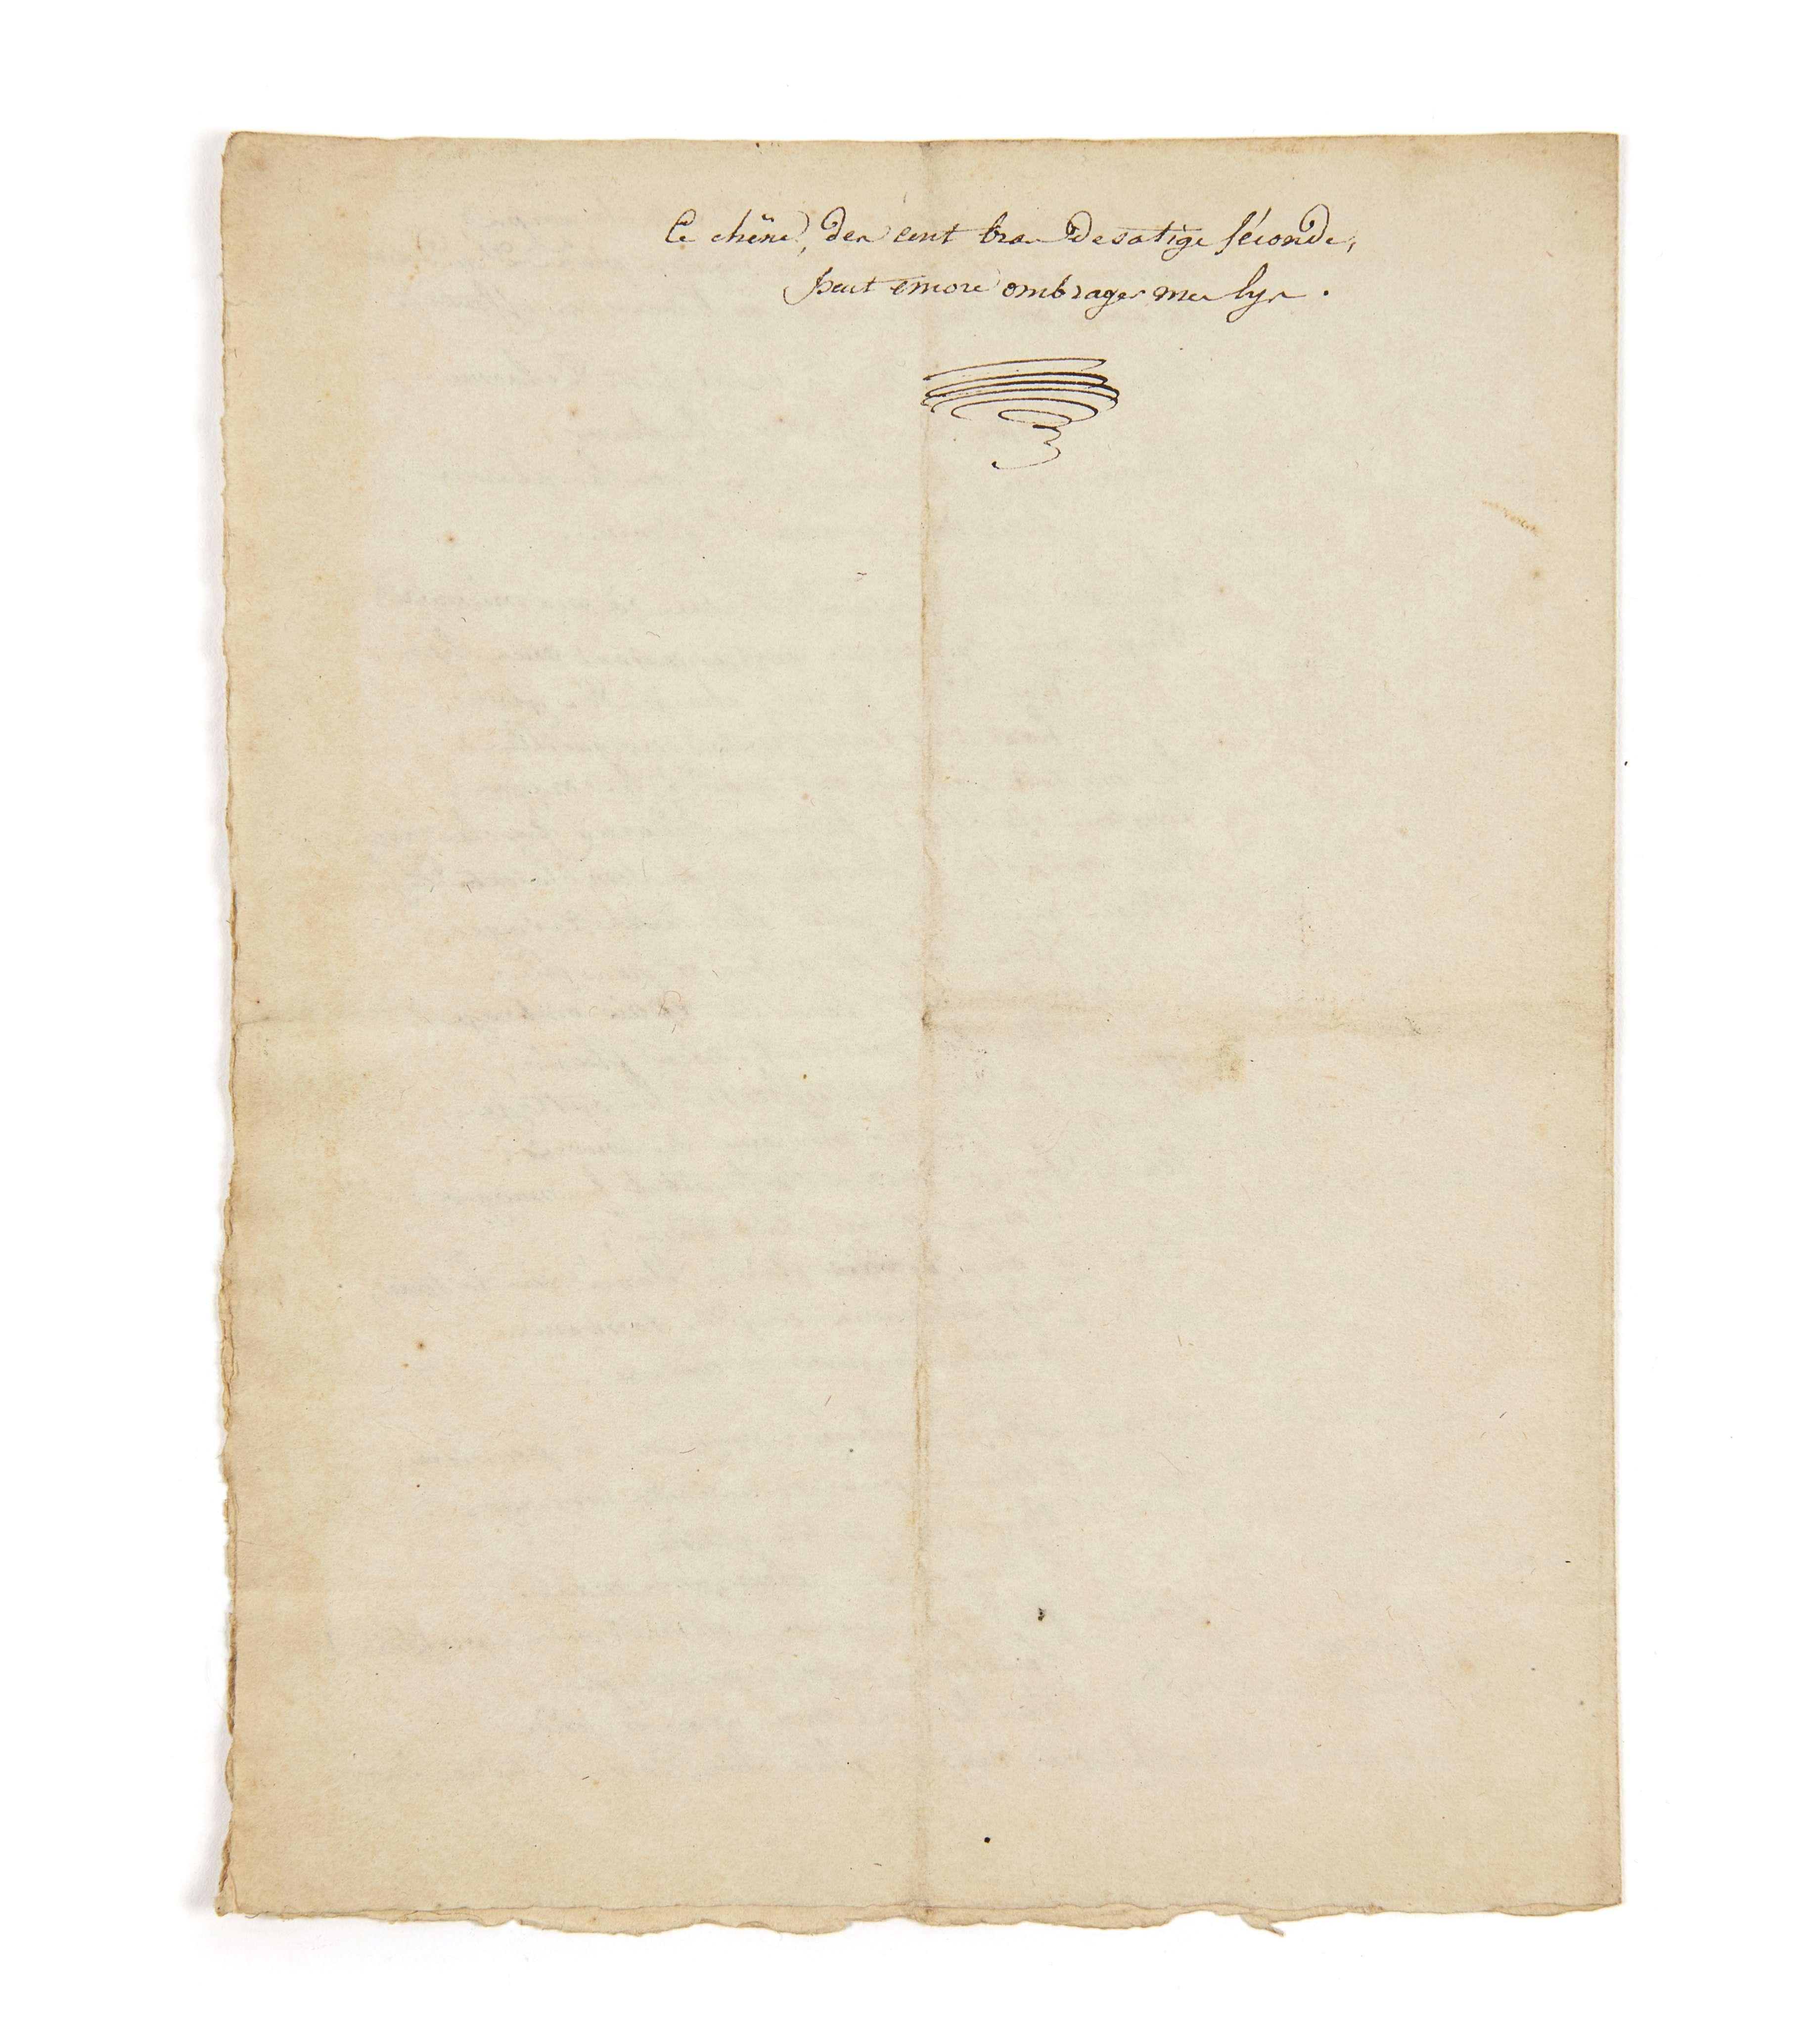 Ce chêne, des cent bras de sa tige féconde,
peut encore ombrager mes lys.